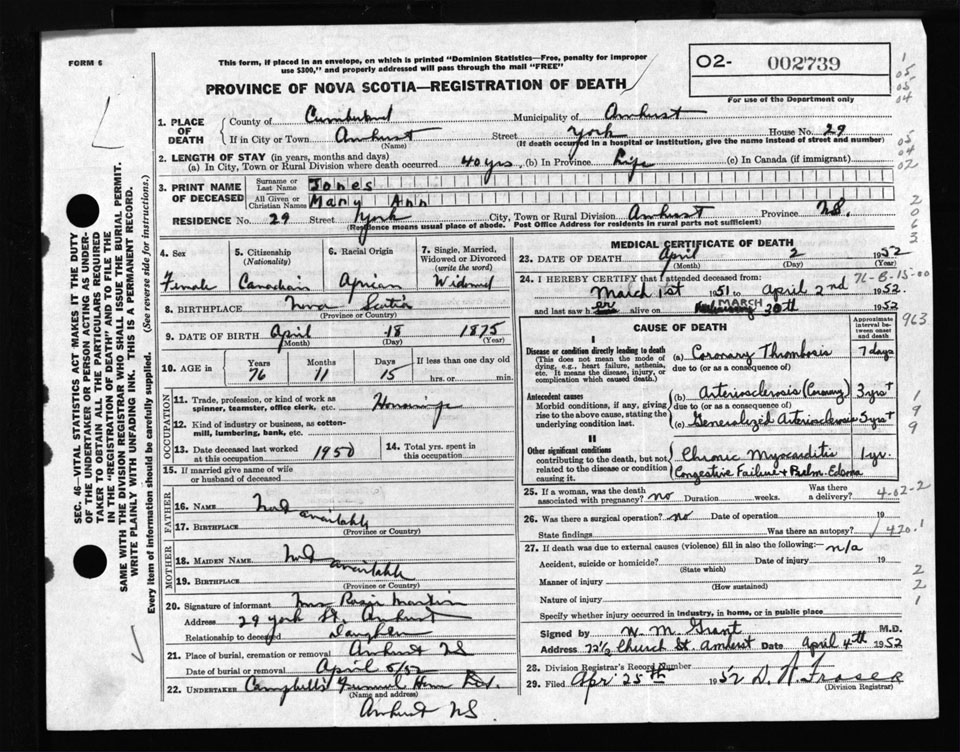 FORM 6
This form, if placed in an envelope, on which is printed "Dominion Statistics—Free, penalty for improper
use $300," and properly addressed will pass through the mail "FREE"
O2- 002739
For use of the Department only
PROVINCE OF NOVA SCOTIA—REGISTRATION OF DEATH
1. PLACE OF DEATH
County of Cumberland Municipality of Amherst
If in City or Town Amherst (Name) Street York House No. 29
(If death occurred in a hospital or institution, give the name instead of street and number)
2. LENGTH OF STAY (in years, months and days)
(a) In City, Town or Rural Division where death occurred 40 yrs. (b) In Province Life (c) In Canada (if immigrant)
3. PRINT NAME OF DECEASED
Surname or Last Name Jones
All Given or Christian Names Mary Ann
RESIDENCE No. 29 Street York City, Town or Rural Division Amherst Province N.S.
(Residence means usual place of abode. Post Office Address for residents in rural parts not sufficient)
4. Sex Female
5. Citizenship (Nationality) Canadian
6. Racial Origin African
7. Single, Married, Widowed or Divorced (write the word) Widowed
8. BIRTHPLACE Nova Scotia
(Province or Country)
9. DATE OF BIRTH April 18 1875
(Month) (Day) (Year)
10. AGE in Years 76 Months 11 Days 15 If less than one day old hrs. or min.
OCCUPATION
11. Trade, profession, or kind of work as spinner, teamster, office clerk, etc.
12. Kind of industry or business, as cotton-mill, lumbering, bank, etc.
13. Date deceased last worked at this occupation 1950
14. Total yrs. spent in this occupation
15. If married give name of wife or husband of deceased
FATHER
16. NAME Not available
17. BIRTHPLACE
(Province or Country)
MOTHER
18. MAIDEN NAME Not available
19. BIRTHPLACE
(Province or Country)
20. Signature of informant Mrs Rosie Martin
Address 29 York St. Amherst
Relationship to deceased Daughter
21. Place of burial, cremation or removal Amherst NS
Date of burial or removal April 5/52
22. UNDERTAKER Campbell's Funeral Home
(Name and address)
Amherst NS
MEDICAL CERTIFICATE OF DEATH
23. DATE OF DEATH April 2 1952
(Month) (Day) (Year)
24. I HEREBY CERTIFY that I attended deceased from: 76-8-15-00
March 1st 1951 to April 2nd 1952.
and last saw her alive on MARCH 30th 1952
CAUSE OF DEATH
Approximate interval between onset and death
I
Disease or condition directly leading to death (a) Coronary Thrombosis 7 days
(This does not mean the mode of dying, e.g., heart failure, asthenia, etc. It means the disease, injury, or complication which caused death. due to (or as a consequence of)
Antecedent causes (b) Arteriosclerosis (Coronary) 3 yrs+
Morbid conditions, if any, giving rise to the above cause, stating the underlying condition last. due to (or as a consequence of)
(c) Generalized Arteriosclerosis 5 yrs+
II
Other significant conditions Chronic Myocarditis 1 yr.
contributing to the death, but not related to the disease or condition causing it. Congestive Failure + Pulm. Edema
25. If a woman, was the death associated with pregnancy? no Duration weeks. Was there a delivery? 4-02-2
26. Was there a surgical operation? no Date of operation 19
State findings Was there an autopsy? 420.1
27. If death was due to external causes (violence) fill in also the following:— n/a
Accident, suicide or homicide? Date of injury 19
(State which)
Manner of injury
(How sustained)
Nature of injury
Specify whether injury occurred in industry, in home, or in public place
Signed by W. M. Grant M.D.
Address 72½ Church St. Amherst Date April 4th 1952
28. Division Registrar's Record Number
29. Filed Apr 25th 1952 D. A. Fraser
(Division Registrar)
SEC. 46—VITAL STATISTICS ACT MAKES IT THE DUTY
OF THE UNDERTAKER OR PERSON ACTING AS UNDER-
TAKER TO OBTAIN ALL THE PARTICULARS REQUIRED
IN THE "REGISTRATION OF DEATH" AND TO FILE THE
SAME WITH THE DIVISION REGISTRAR WHO SHALL ISSUE THE BURIAL PERMIT.
WRITE PLAINLY WITH UNFADING INK. THIS IS A PERMANENT RECORD.
Every item of information should be carefully supplied. (See reverse side for instructions.)
1
05
05
04
05
04
02
2
0
6
3
2
963
1
9
9
2
2
1